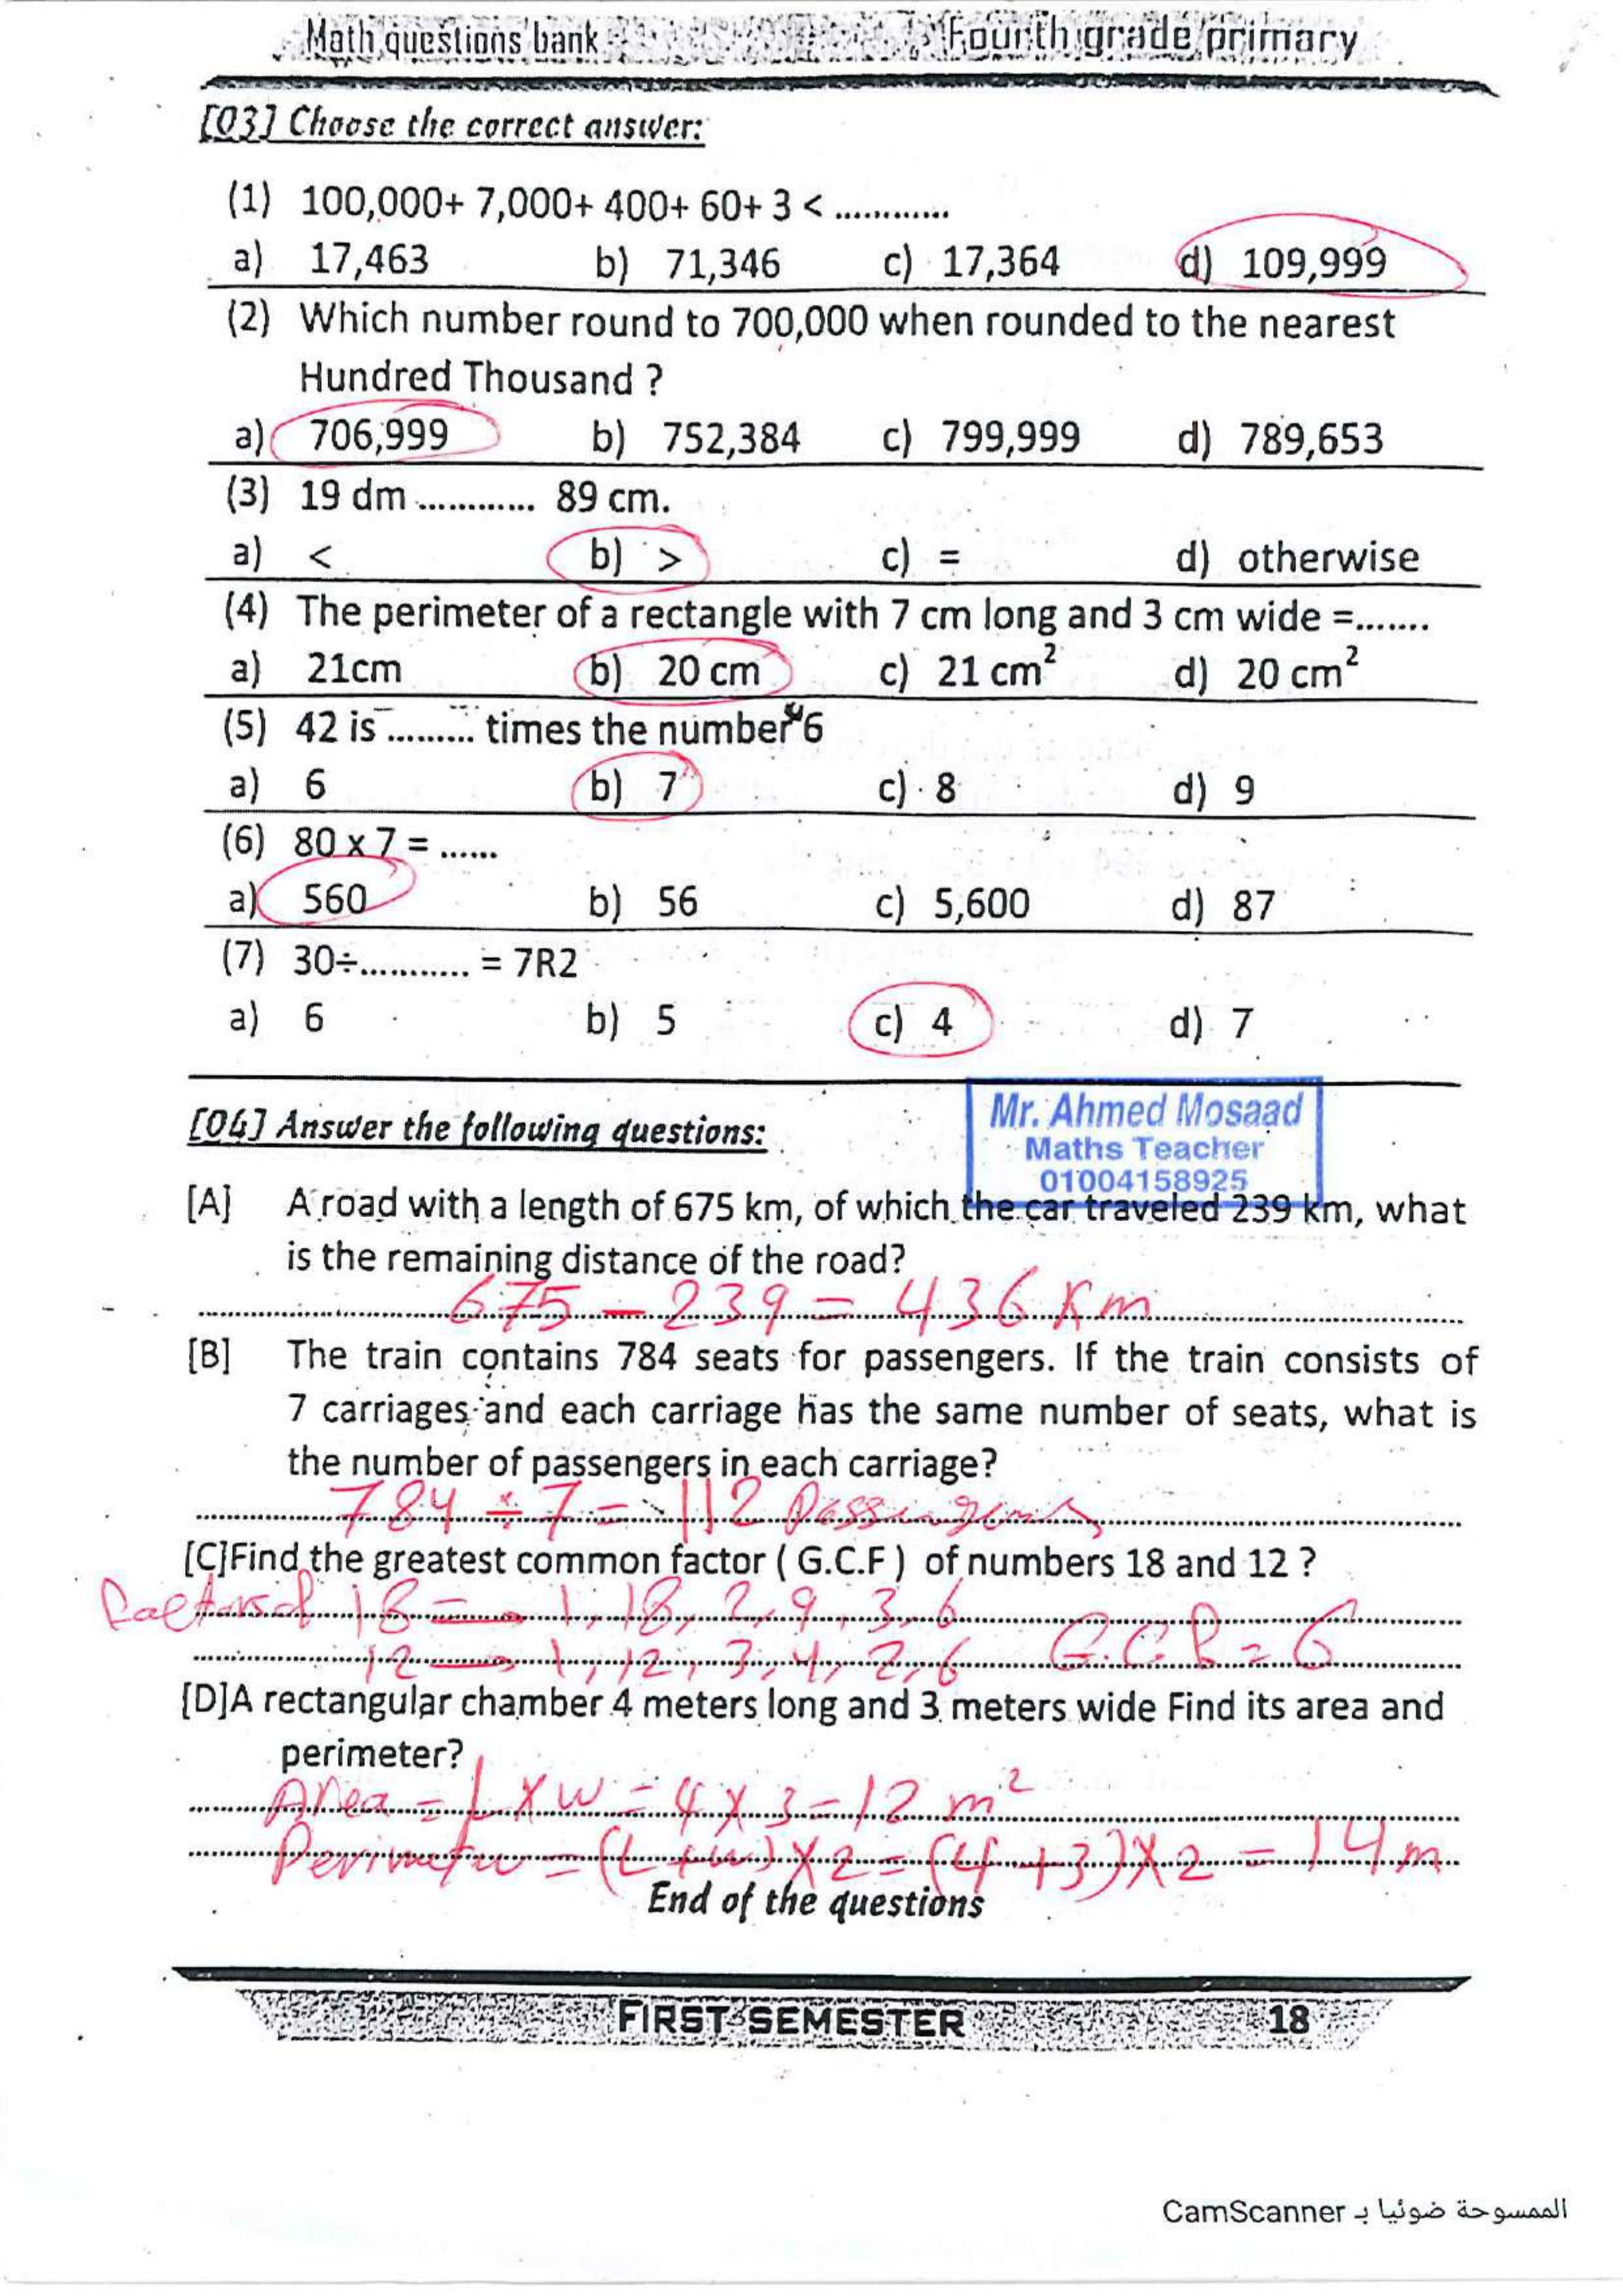 Math questions bank Fourth grade primary
[Q3] Choose the correct answer:
(1) 100,000+ 7,000+ 400+ 60+ 3 < .............
a) 17,463 b) 71,346 c) 17,364 d) 109,999
(2) Which number round to 700,000 when rounded to the nearest
Hundred Thousand ?
a) 706,999 b) 752,384 c) 799,999 d) 789,653
(3) 19 dm ............. 89 cm.
a) < b) > c) = d) otherwise
(4) The perimeter of a rectangle with 7 cm long and 3 cm wide =.......
a) 21cm b) 20 cm c) 21 cm² d) 20 cm²
(5) 42 is ......... times the number 6
a) 6 b) 7 c) 8 d) 9
(6) 80 x 7 = ......
a) 560 b) 56 c) 5,600 d) 87
(7) 30÷........... = 7R2
a) 6 b) 5 c) 4 d) 7
Mr. Ahmed Mosaad
Maths Teacher
01004158925
[Q4] Answer the following questions:
[A] A road with a length of 675 km, of which the car traveled 239 km, what
is the remaining distance of the road?
675 - 239 = 436 Km
[B] The train contains 784 seats for passengers. If the train consists of
7 carriages and each carriage has the same number of seats, what is
the number of passengers in each carriage?
784 ÷ 7 = 112 Passengers
[C]Find the greatest common factor ( G.C.F ) of numbers 18 and 12 ?
Factors of 18 → 1, 18, 2, 9, 3, 6
12 → 1, 12, 3, 4, 2, 6 G.C.F = 6
[D]A rectangular chamber 4 meters long and 3 meters wide Find its area and
perimeter?
Area = L X W = 4 X 3 = 12 m²
Perimeter = (L + W) X 2 = (4 + 3) X 2 = 14 m
End of the questions
FIRST SEMESTER 18
الممسوحة ضوئيا بـ CamScanner